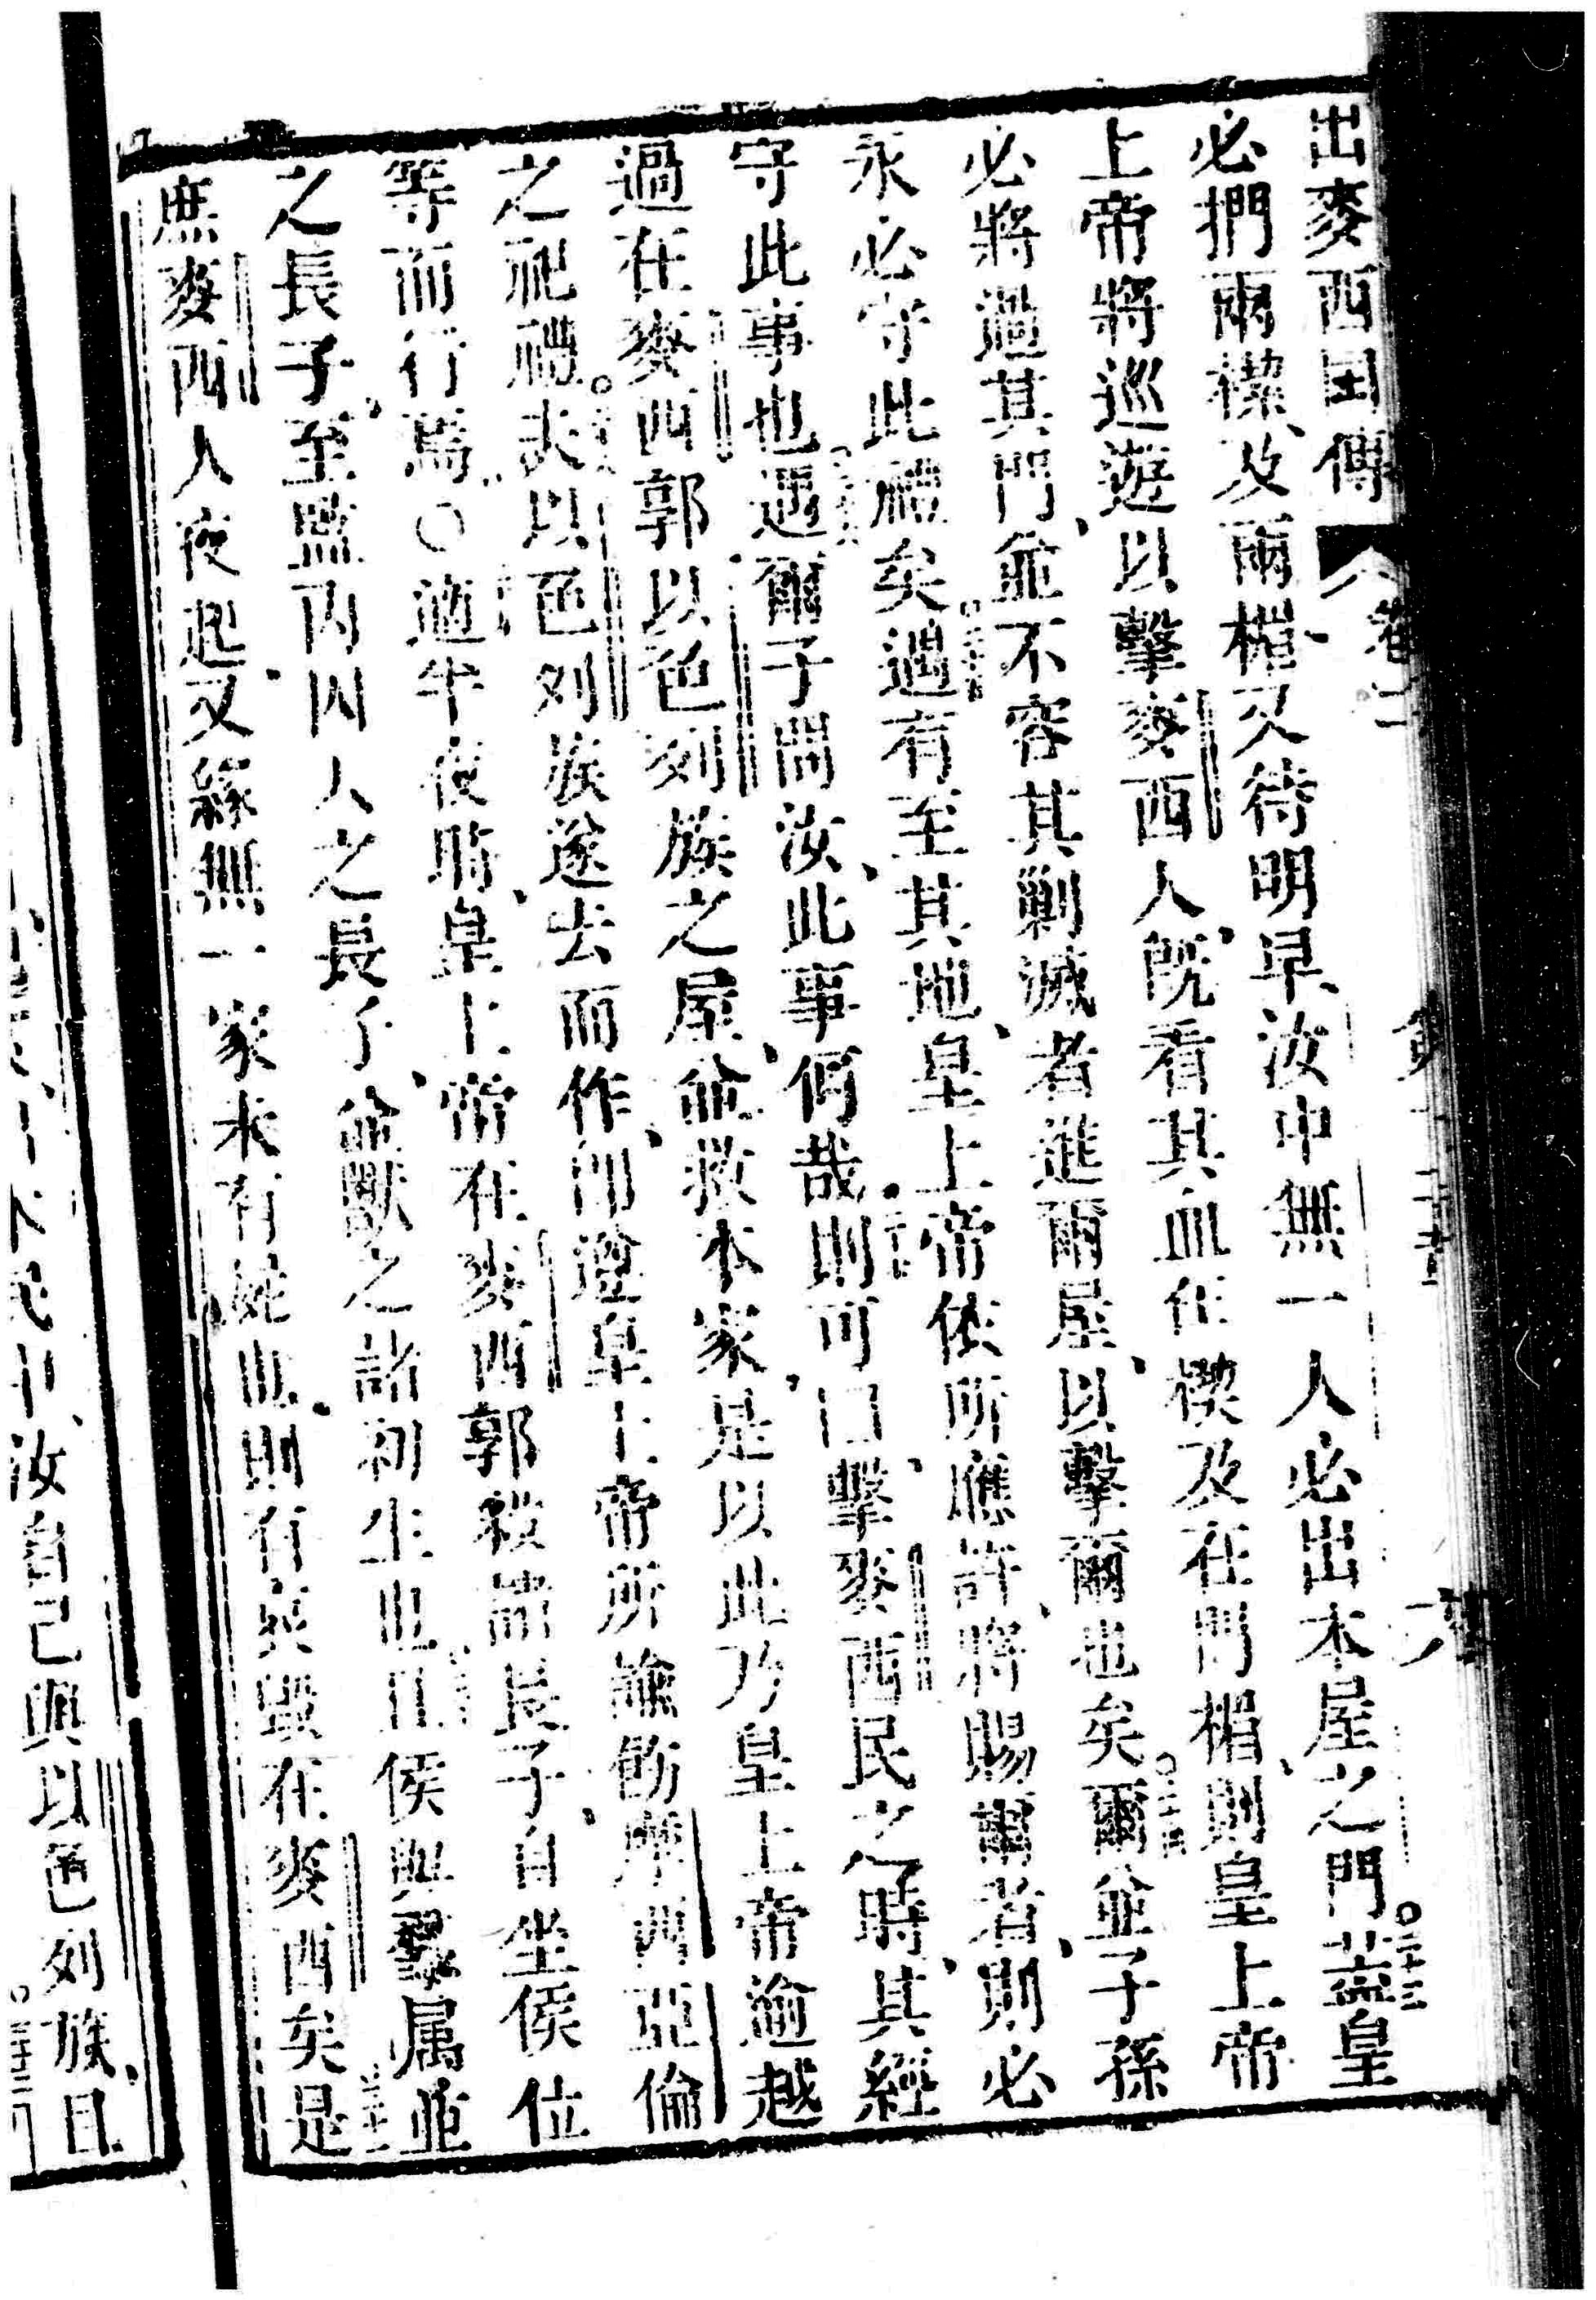 出麥西国傳 卷二 六
必捫兩楔、及兩樦、又待明早、汝中無一人必出本屋之門、蓋皇
上帝將巡遊以擊麥西人、既看其血在楔及在門楣、則皇上帝
必將過其門、並不容其剿滅者進爾屋、以擊爾也矣爾並子孫
永必守此禮矣遇有至其地、皇上帝依所應許、將賜爾者、則必
守此事也遇爾子問汝、此事何哉則可曰、擊麥西民之時、其經
過在麥西郭以色列族之屋、並救本家、是以此乃皇上帝逾越
之祀禮夫以色列族遂去而作、即遵皇上帝所諭飭摩西亞倫
等而行焉○適半夜時、皇上帝在麥西郭殺諸長子、自坐侯位
之長子、至監內囚人之長子、並獸之諸初生也且侯與眾属並
庶麥西人夜起、又緣無一家未有死、也則有哭聲在麥西矣是
汝自己與以色列族、且